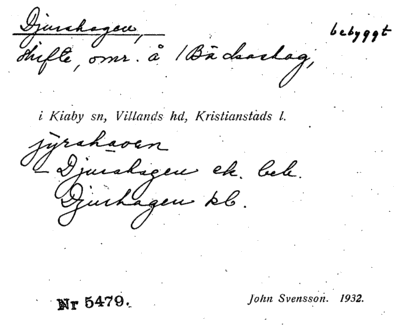 Djurshagen, bebyggt
skifte, omr. å 1 Bäckaskog,
i Kiaby sn, Villands hd, Kristianstads l.
jyrshaven
– Djurshagen ek. beb.
Djurshagen kb.
Nr 5479. John Svensson. 1932.